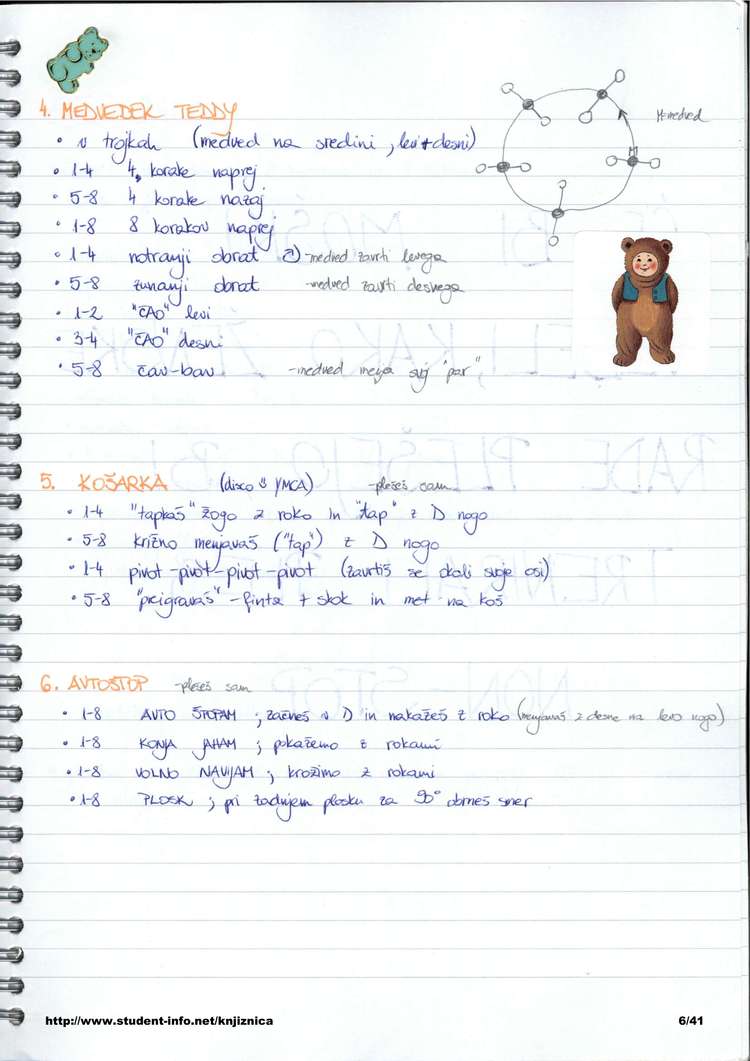 4. MEDVEDEK TEDDY
M=medved
• v trojkah (medved na sredini, levi + desni)
M
• 1-4 4 korake naprej
• 5-8 4 korake nazaj
• 1-8 8 korakov naprej
• 1-4 notranji obrat - medved zavrti levega
• 5-8 zunanji obrat - medved zavrti desnega
• 1-2 "ČAO" levi
• 3-4 "ČAO" desni
• 5-8 čav-bav - medved menja svoj "par"
5. KOŠARKA (disco YMCA) - plešeš sam
• 1-4 "tapkaš" žogo z roko in "tap" z D nogo
• 5-8 križno menjavaš ("tap") z D nogo
• 1-4 pivot-pivot-pivot-pivot (zavrtiš se okoli svoje osi)
• 5-8 "preigravaš" - finta + skok in met na koš
6. AVTOSTOP - plešeš sam
• 1-8 AVTO ŠTOPAM ; začneš v D in nakažeš z roko (menjavaš z desne na levo nogo)
• 1-8 KONJA JAHAM ; pokažemo z rokami
• 1-8 VOLNO NAVIJAM ; krožimo z rokami
• 1-8 PLOSK ; pri zadnjem plosku za 90° obrneš smer
http://www.student-info.net/knjiznica 6/41